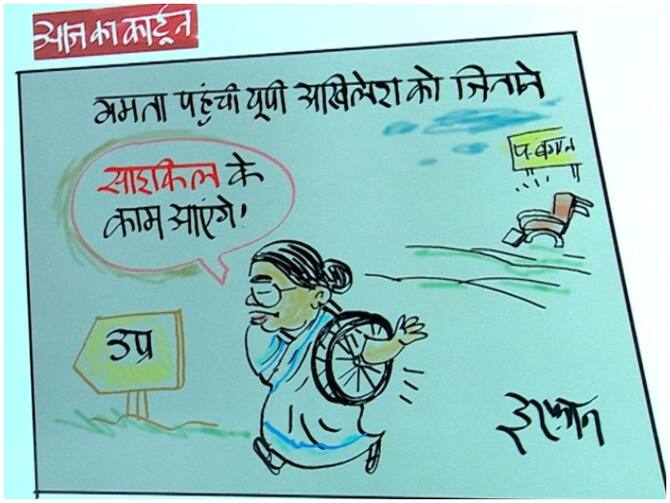 आज का कार्टून
ममता पहुंची यूपी अखिलेश को जिताने
साइकिल के
काम आएंगे!
प. बंगाल
उप्र
इरफान